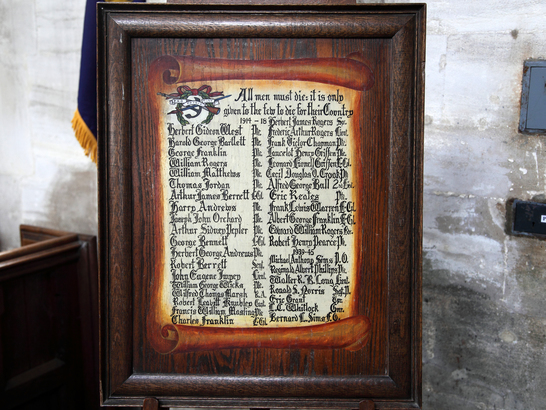 All men must die: it is only
given to the few to die for their Country
1914 - 18
Herbert Gideon West Pte.
Harold George Bartlett Pte.
George Franklin Pte.
William Rogers Pte.
William Matthews Pte.
Thomas Jordan Pte.
Arthur James Berrett
Harry Andrews Pte.
Joseph John Orchard Pte.
Arthur Sidney Pepler Pte.
George Bennett
Herbert George Andrews Pte.
Robert Berrett
John Eugene Impey Lieut.
William George Wicks Pte.
Wilfred Thomas Marsh R.A.
Robert Keabell Knubley Capt.
Francis William Pte.
Charles Franklin
Herbert James Rogers
Frederic Arthur Rogers
Frank Victor Chapman Pte.
Lancelot Henry Griffen Pte.
Leonard Lionell Griffen
Cecil Douglas O. Crook Pte.
Alfred George Ball
Eric Keales Pte.
Frank Lewis Warren
Albert George Franklin
Edward William Rogers
Robert Henry Pearce Pte.
1939-45
Michael Anthony Sims P.O.
Reginald Albert Phillips Pte.
Walter R. R. Long Lieut.
Ronald S. Norris
Eric Grant
L.C. Whitlock Gnr.
Bernard L. Sims F.O.